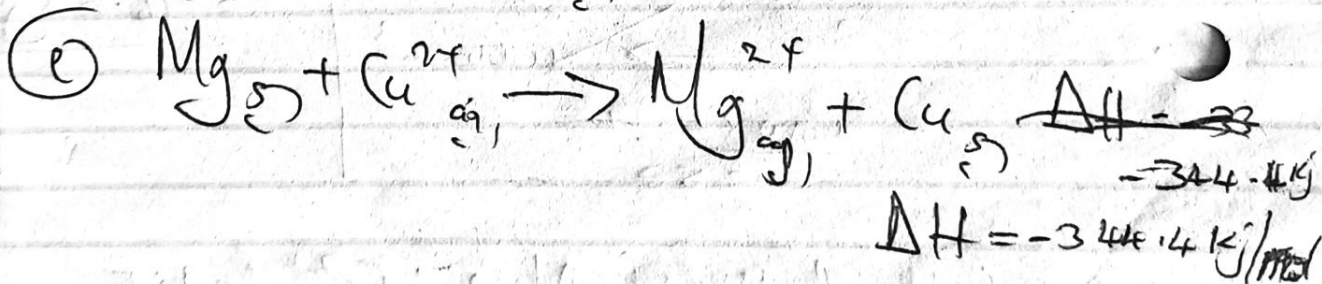 (e) Mg(s) + Cu²⁺(aq) → Mg²⁺(aq) + Cu(s) ΔH - -33
-344.4Kj
ΔH = -344.4 Kj/mol